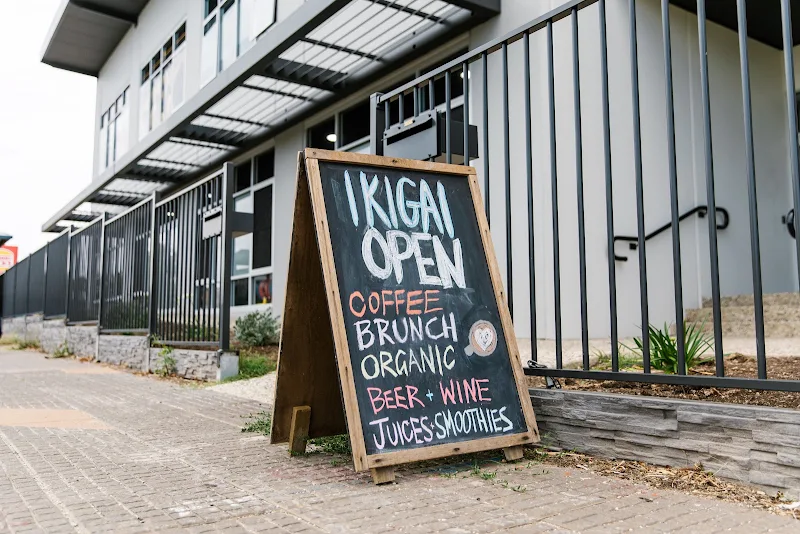 IKIGAI
OPEN
COFFEE
BRUNCH
ORGANIC
BEER + WINE
JUICES + SMOOTHIES